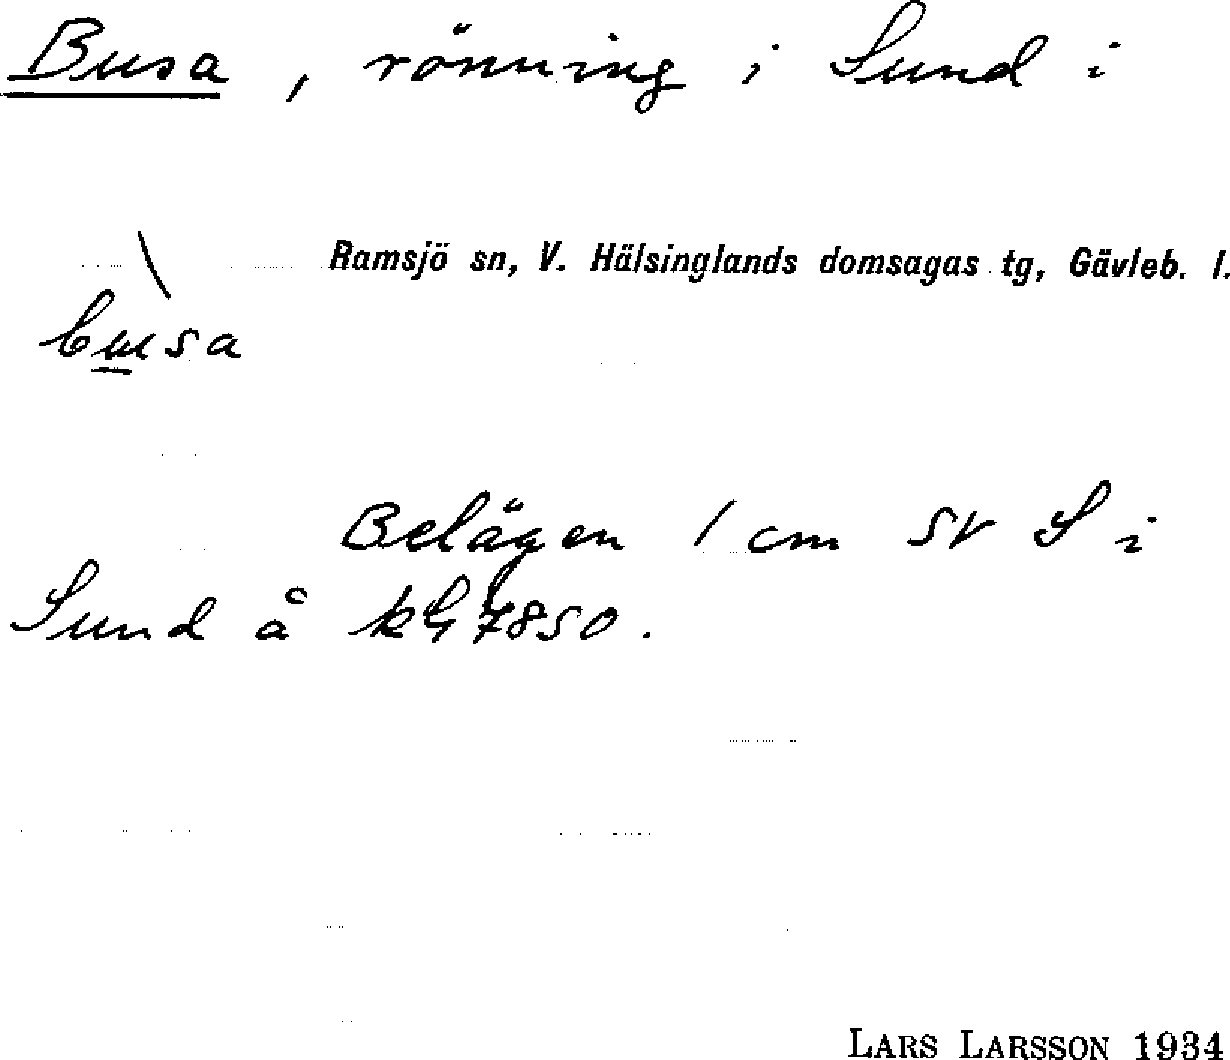 Busa, rönning i Sund i
Ramsjö sn, V. Hälsinglands domsagas tg, Gävleb. l.
\
busa
Belägen 1 cm SV S i
Sund å kbl 7850.
LARS LARSSON 1934